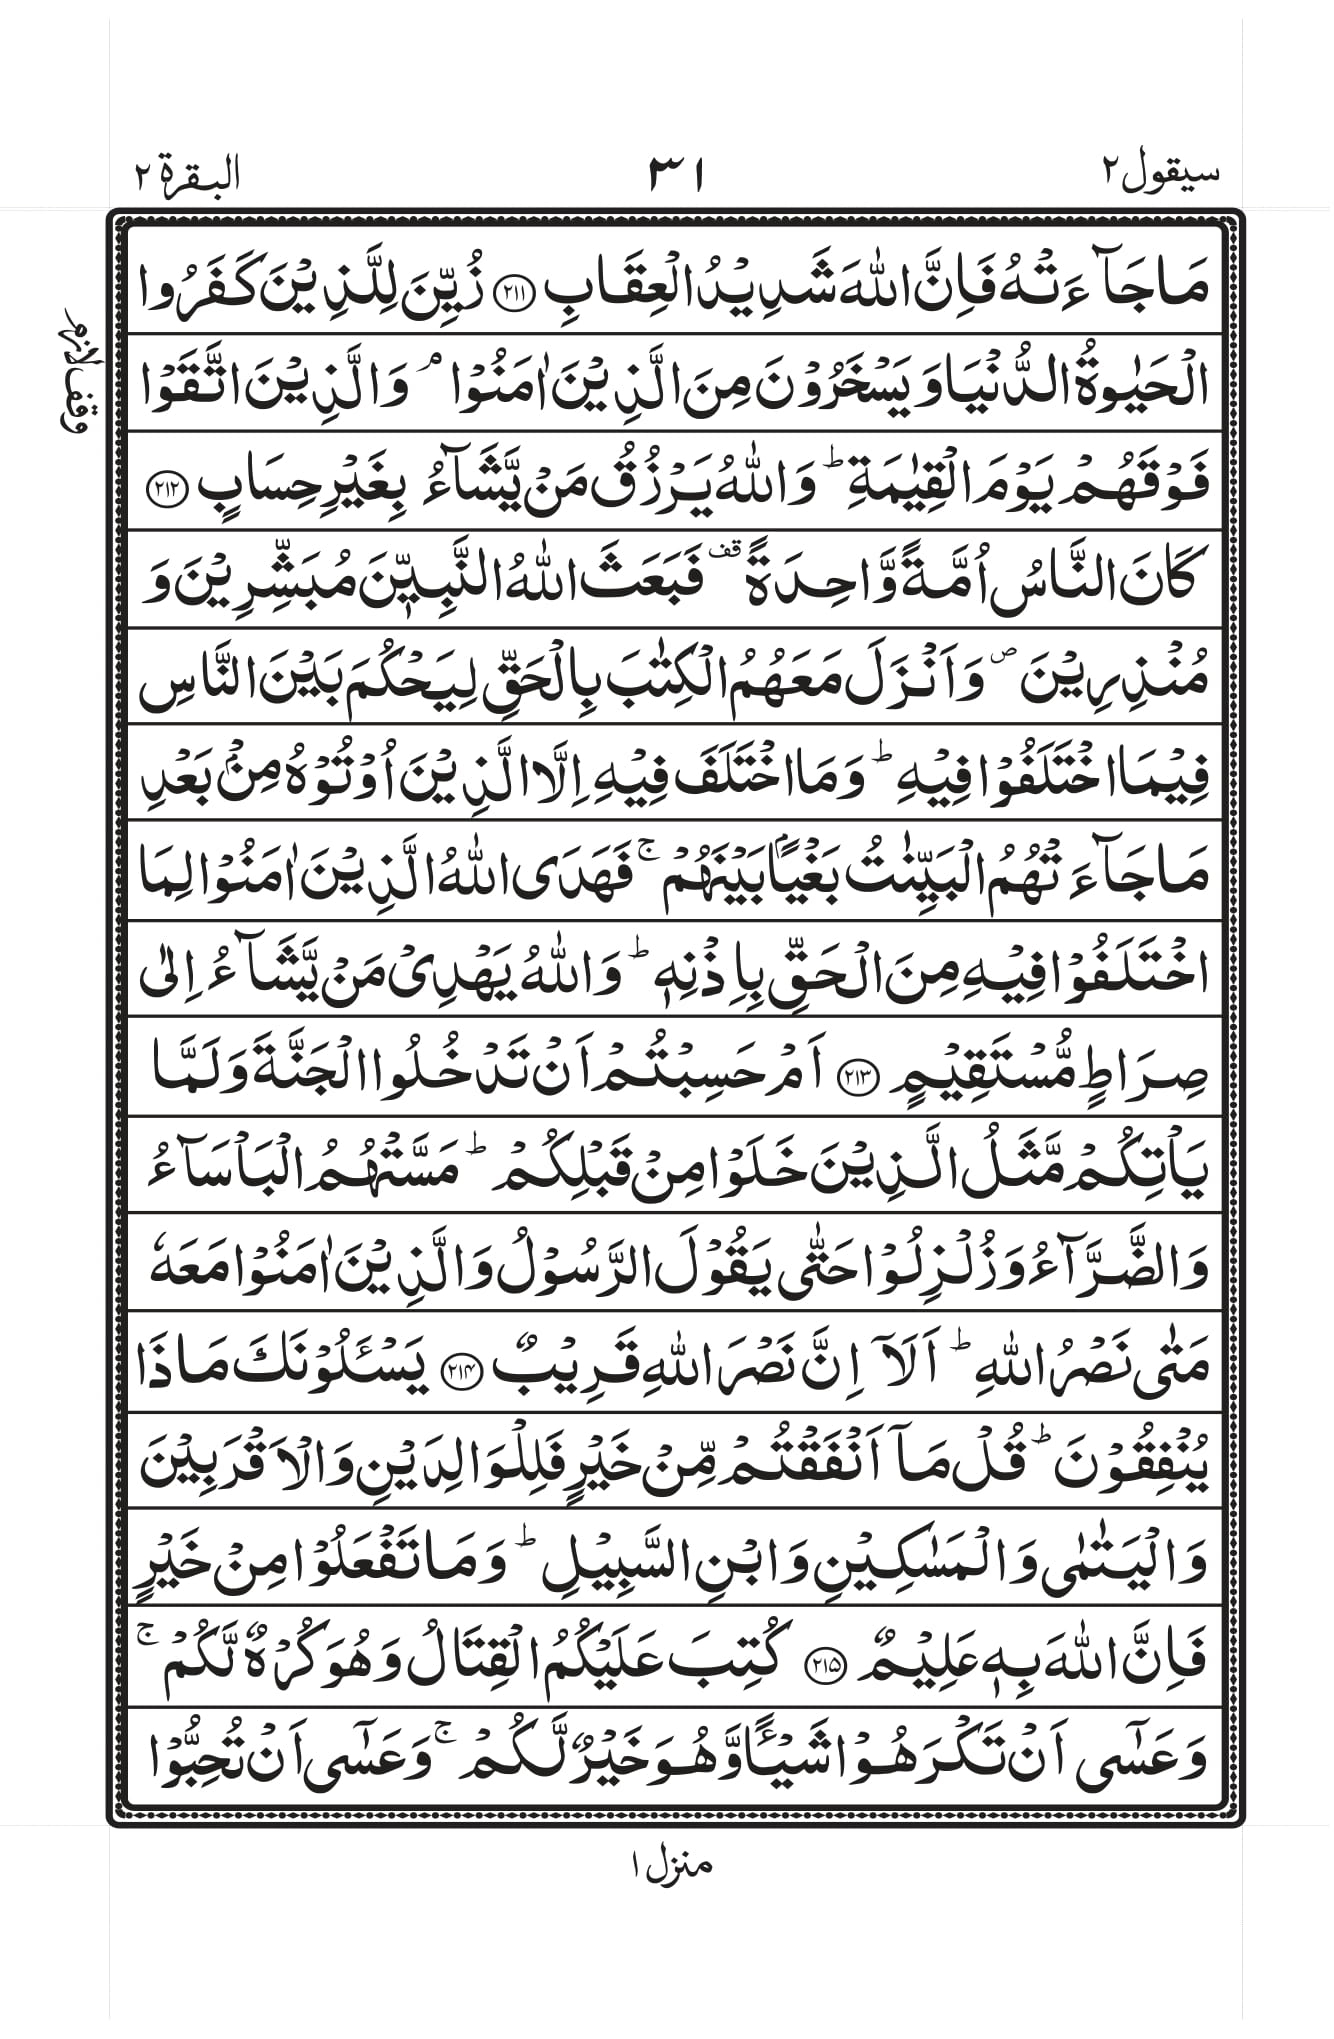 سيقول ٢
٣١
البقرة ٢
مَا جَآءَتْهُ فَاِنَّ اللّٰهَ شَدِيْدُ الْعِقَابِ ﴿۲۱۱﴾ زُيِّنَ لِلَّذِيْنَ كَفَرُوا
الْحَيٰوةُ الدُّنْيَا وَ يَسْخَرُوْنَ مِنَ الَّذِيْنَ اٰمَنُوْا ۘ وَ الَّذِيْنَ اتَّقَوْا
وقف لازم
فَوْقَهُمْ يَوْمَ الْقِيٰمَةِ ؕ وَ اللّٰهُ يَرْزُقُ مَنْ يَّشَآءُ بِغَيْرِ حِسَابٍ ﴿۲۱۲﴾
كَانَ النَّاسُ اُمَّةً وَّاحِدَةً قف فَبَعَثَ اللّٰهُ النَّبِيّٖنَ مُبَشِّرِيْنَ وَ
مُنْذِرِيْنَ ص وَ اَنْزَلَ مَعَهُمُ الْكِتٰبَ بِالْحَقِّ لِيَحْكُمَ بَيْنَ النَّاسِ
فِيْمَا اخْتَلَفُوْا فِيْهِ ؕ وَ مَا اخْتَلَفَ فِيْهِ اِلَّا الَّذِيْنَ اُوْتُوْهُ مِنْۢ بَعْدِ
مَا جَآءَتْهُمُ الْبَيِّنٰتُ بَغْيًۢا بَيْنَهُمْ ۚ فَهَدَى اللّٰهُ الَّذِيْنَ اٰمَنُوْا لِمَا
اخْتَلَفُوْا فِيْهِ مِنَ الْحَقِّ بِاِذْنِهٖ ؕ وَ اللّٰهُ يَهْدِيْ مَنْ يَّشَآءُ اِلٰى
صِرَاطٍ مُّسْتَقِيْمٍ ﴿۲۱۳﴾ اَمْ حَسِبْتُمْ اَنْ تَدْخُلُوا الْجَنَّةَ وَ لَمَّا
يَاْتِكُمْ مَّثَلُ الَّذِيْنَ خَلَوْا مِنْ قَبْلِكُمْ ؕ مَسَّتْهُمُ الْبَاْسَآءُ
وَ الضَّرَّآءُ وَ زُلْزِلُوْا حَتّٰى يَقُوْلَ الرَّسُوْلُ وَ الَّذِيْنَ اٰمَنُوْا مَعَهٗ
مَتٰى نَصْرُ اللّٰهِ ؕ اَلَآ اِنَّ نَصْرَ اللّٰهِ قَرِيْبٌ ﴿۲۱۴﴾ يَسْـَٔلُوْنَكَ مَا ذَا
يُنْفِقُوْنَ ؕ قُلْ مَآ اَنْفَقْتُمْ مِّنْ خَيْرٍ فَلِلْوَالِدَيْنِ وَ الْاَقْرَبِيْنَ
وَ الْيَتٰمٰى وَ الْمَسٰكِيْنِ وَ ابْنِ السَّبِيْلِ ؕ وَ مَا تَفْعَلُوْا مِنْ خَيْرٍ
فَاِنَّ اللّٰهَ بِهٖ عَلِيْمٌ ﴿۲۱۵﴾ كُتِبَ عَلَيْكُمُ الْقِتَالُ وَ هُوَ كُرْهٌ لَّكُمْ ۚ
وَ عَسٰٓى اَنْ تَكْرَهُوْا شَيْـًٔا وَّ هُوَ خَيْرٌ لَّكُمْ ۚ وَ عَسٰٓى اَنْ تُحِبُّوْا
منزل ١